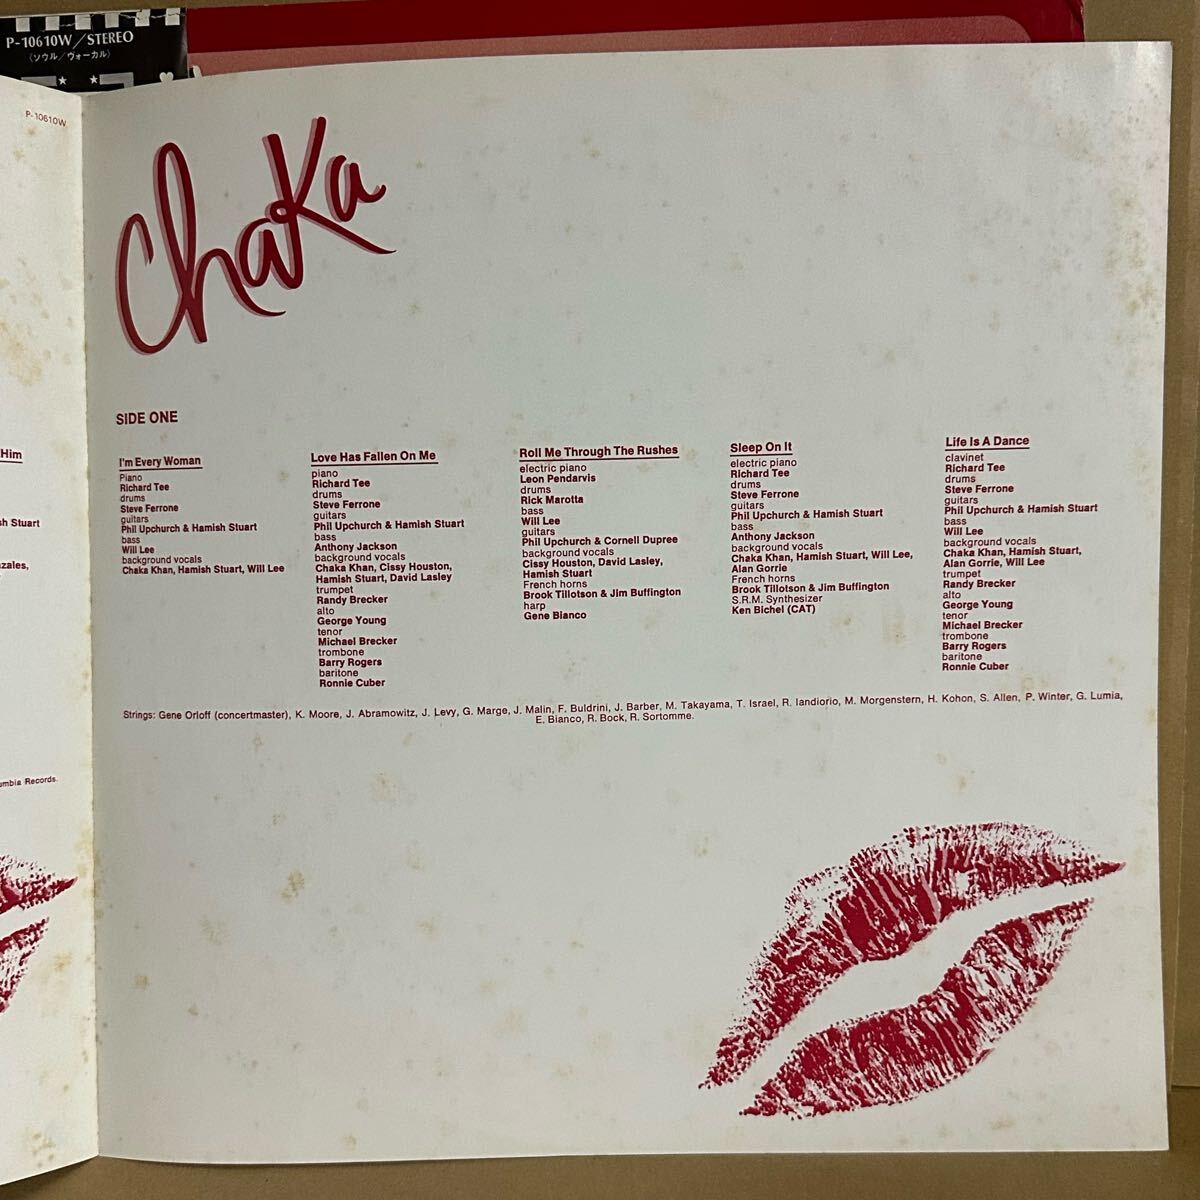 P-10610W/STEREO
(ソウル/ヴォーカル)
P-10610W
Chaka
SIDE ONE
I'm Every Woman
Piano
Richard Tee
drums
Steve Ferrone
guitars
Phil Upchurch & Hamish Stuart
bass
Will Lee
background vocals
Chaka Khan, Hamish Stuart, Will Lee
Love Has Fallen On Me
piano
Richard Tee
drums
Steve Ferrone
guitars
Phil Upchurch & Hamish Stuart
bass
Anthony Jackson
background vocals
Chaka Khan, Cissy Houston,
Hamish Stuart, David Lasley
trumpet
Randy Brecker
alto
George Young
tenor
Michael Brecker
trombone
Barry Rogers
baritone
Ronnie Cuber
Roll Me Through The Rushes
electric piano
Leon Pendarvis
drums
Rick Marotta
bass
Will Lee
guitars
Phil Upchurch & Cornell Dupree
background vocals
Cissy Houston, David Lasley,
Hamish Stuart
French horns
Brook Tillotson & Jim Buffington
harp
Gene Bianco
Sleep On It
electric piano
Richard Tee
drums
Steve Ferrone
guitars
Phil Upchurch & Hamish Stuart
bass
Anthony Jackson
background vocals
Chaka Khan, Hamish Stuart, Will Lee,
Alan Gorrie
French horns
Brook Tillotson & Jim Buffington
S.R.M. Synthesizer
Ken Bichel (CAT)
Life Is A Dance
clavinet
Richard Tee
drums
Steve Ferrone
guitars
Phil Upchurch & Hamish Stuart
bass
Will Lee
background vocals
Chaka Khan, Hamish Stuart,
Alan Gorrie, Will Lee
trumpet
Randy Brecker
alto
George Young
tenor
Michael Brecker
trombone
Barry Rogers
baritone
Ronnie Cuber
Strings: Gene Orloff (concertmaster), K. Moore, J. Abramowitz, J. Levy, G. Marge, J. Malin, F. Buldrini, J. Barber, M. Takayama, T. Israel, R. Iandiorio, M. Morgenstern, H. Kohon, S. Allen, P. Winter, G. Lumia,
E. Bianco, R. Bock, R. Sortomme.
Him
sh Stuart
zales,
umbia Records.